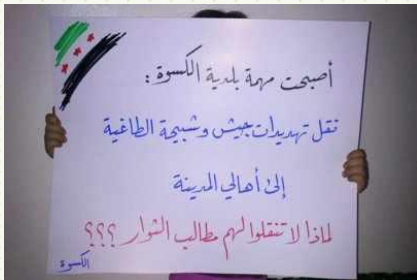 أصبحت مهمة بلدية الكسوة :
نقل تهديدات جيش وشبيحة الطاغية
إلى أهالي المدينة
لماذا لا تنقلوا لهم مطالب الثوار ؟؟؟
الكسوة